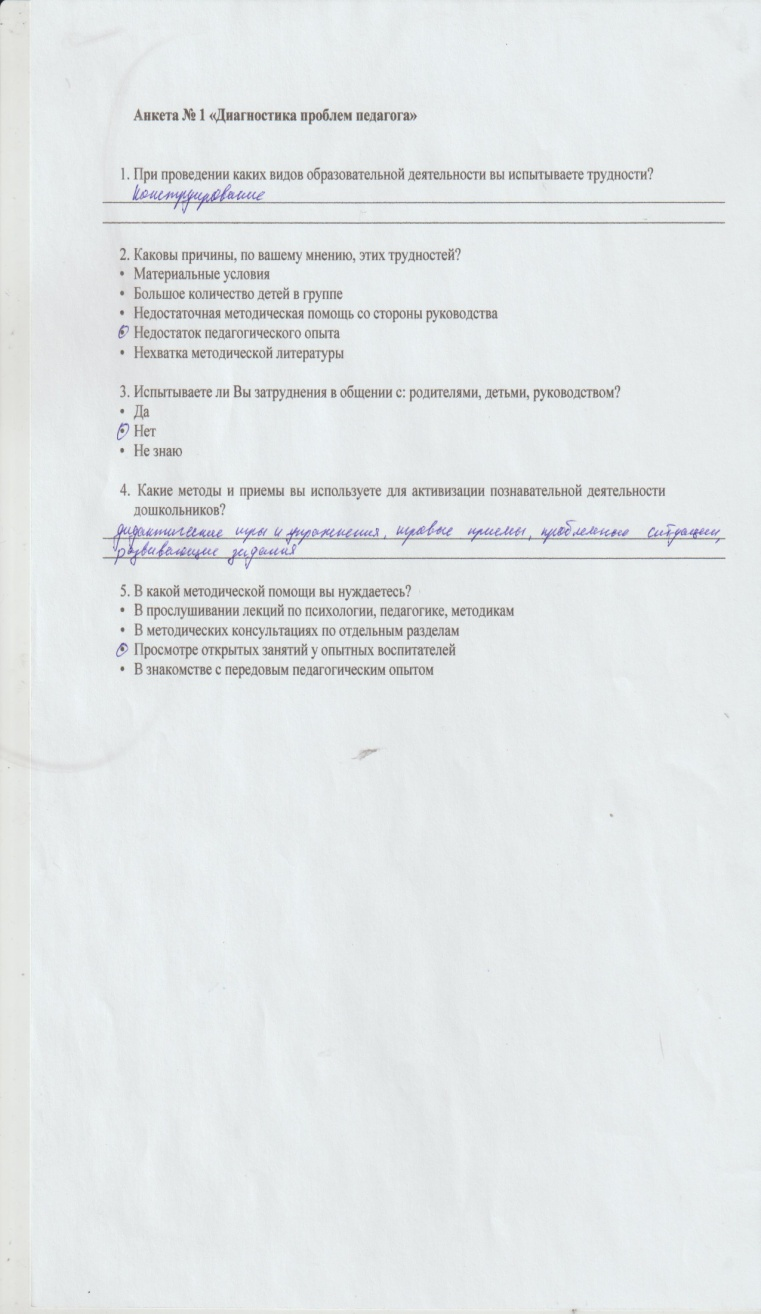 Анкета № 1 «Диагностика проблем педагога»
1. При проведении каких видов образовательной деятельности вы испытываете трудности?
Конструирование
2. Каковы причины, по вашему мнению, этих трудностей?
• Материальные условия
• Большое количество детей в группе
• Недостаточная методическая помощь со стороны руководства
• Недостаток педагогического опыта
• Нехватка методической литературы
3. Испытываете ли Вы затруднения в общении с: родителями, детьми, руководством?
• Да
• Нет
• Не знаю
4. Какие методы и приемы вы используете для активизации познавательной деятельности
дошкольников?
дидактические игры и упражнения, игровые приемы, проблемные ситуации,
развивающие задания
5. В какой методической помощи вы нуждаетесь?
• В прослушивании лекций по психологии, педагогике, методикам
• В методических консультациях по отдельным разделам
• Просмотре открытых занятий у опытных воспитателей
• В знакомстве с передовым педагогическим опытом